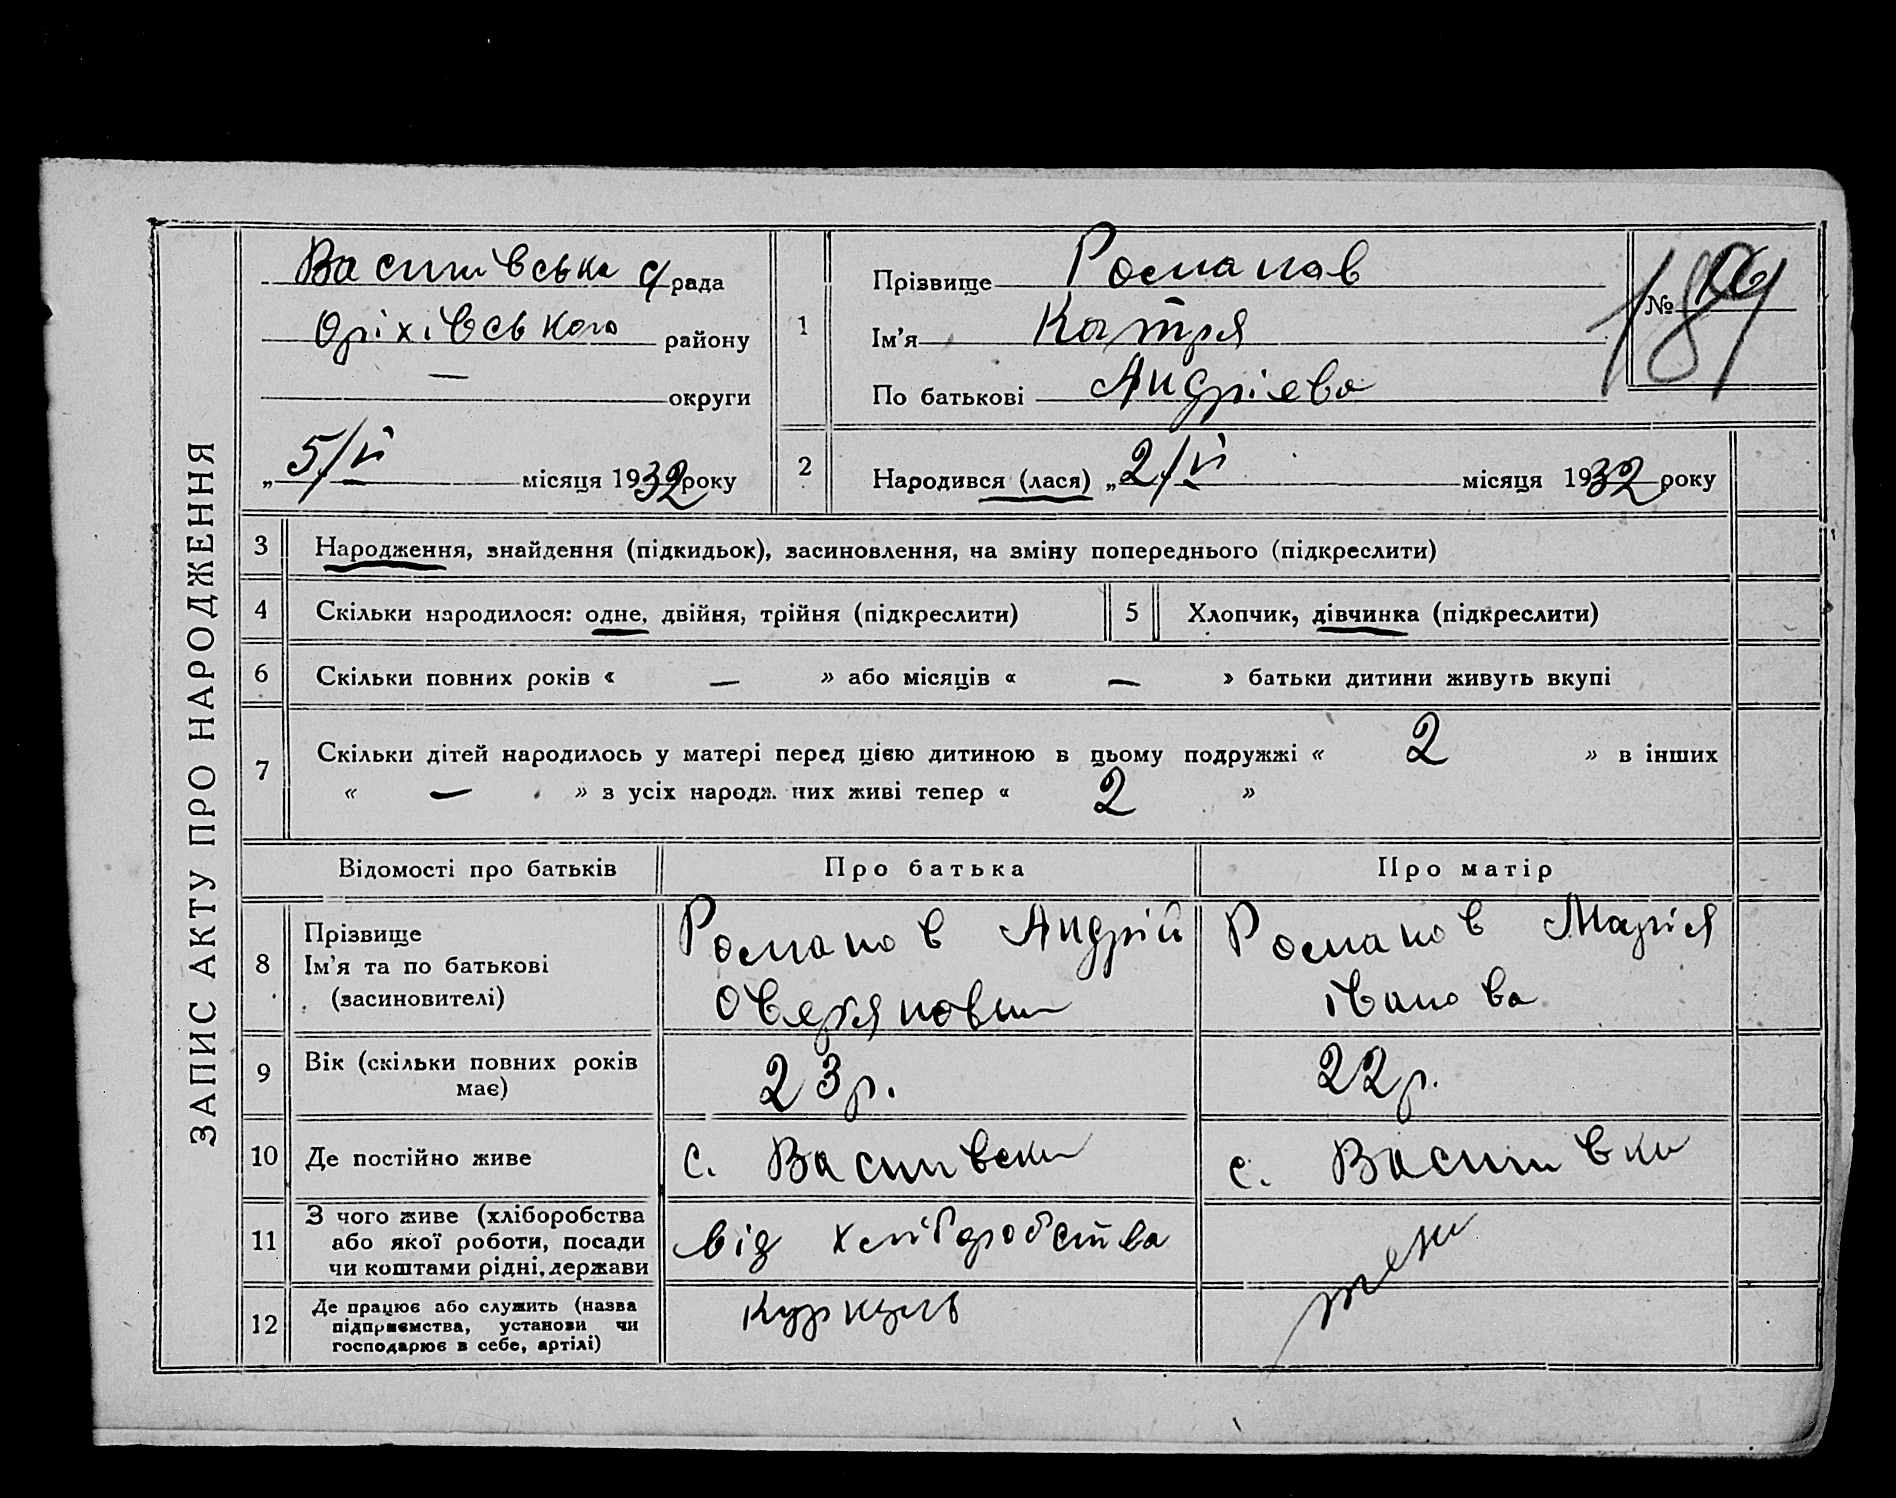 ЗАПИС АКТУ ПРО НАРОДЖЕННЯ
Василівська с/рада
Оріхівського району
— округи
„ 5/VI місяця 1932 року
1
Прізвище Романов
Ім'я Катря
По батькові Андрієва
№
189
2
Народився (лася) „ 2/VI місяця 1932 року
3 Народження, знайдення (підкидьок), засиновлення, на зміну попереднього (підкреслити)
4 Скільки народилося: одне, двійня, трійня (підкреслити) 5 Хлопчик, дівчинка (підкреслити)
6 Скільки повних років « — » або місяців « — » батьки дитини живуть вкупі
7 Скільки дітей народилось у матері перед цією дитиною в цьому подружжі « 2 » в інших
« — » з усіх народж. них живі тепер « 2 »
Відомості про батьків Про батька Про матір
8 Прізвище
Ім'я та по батькові
(засиновителі)
Романов Андрій
Овер'янович
Романов Марія
Іванова
9 Вік (скільки повних років
має)
23 р. 22 р.
10 Де постійно живе с. Василівки с. Василівки
11 З чого живе (хліборобства
або якої роботи, посади
чи коштами рідні, держави
від хліборобства
12 Де працює або служить (назва
підприємства, установи чи
господарює в себе, артілі)